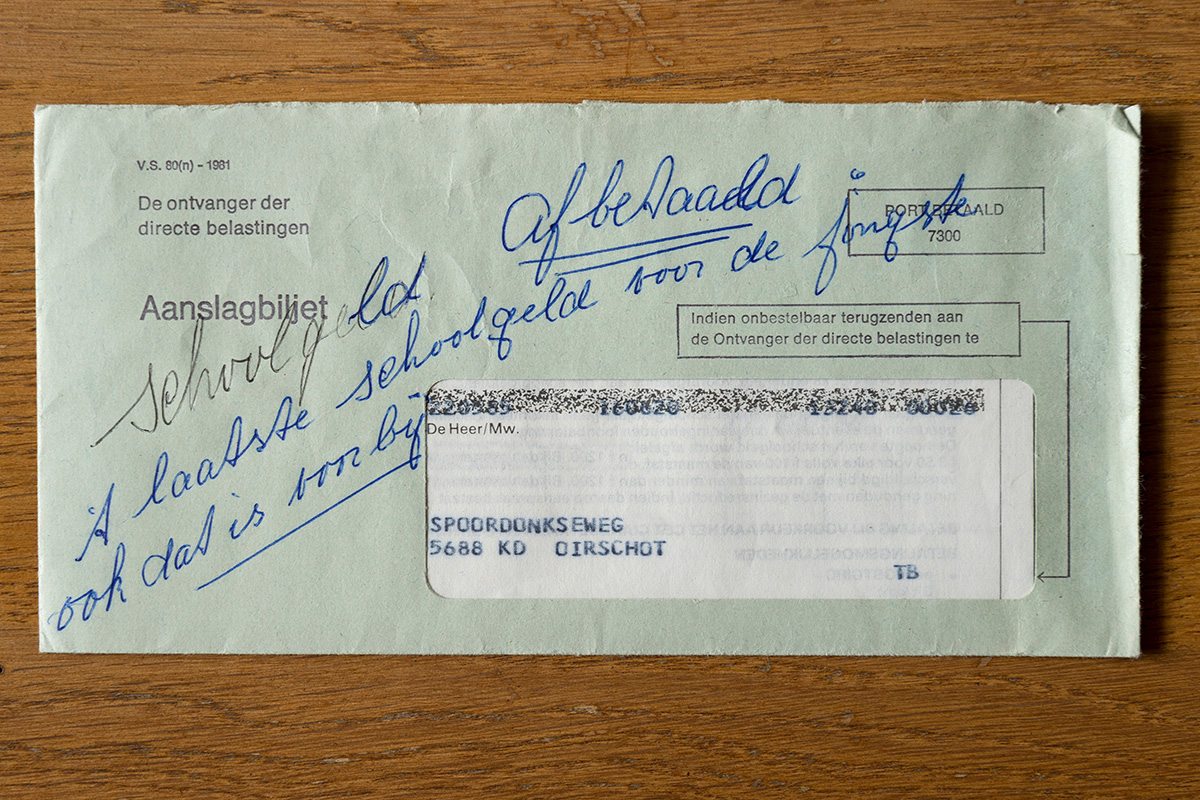 V.S. 80(n) - 1981
De ontvanger der
directe belastingen
Aanslagbiljet
PORT BETAALD
7300
Indien onbestelbaar terugzenden aan
de Ontvanger der directe belastingen te
schoolgeld afbetaald
't laatste schoolgeld voor de jongste
ook dat is voorbij
De Heer/Mw.
SPOORDONKSEWEG
5688 KD OIRSCHOT
TB